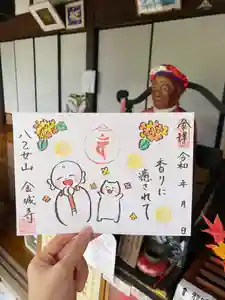 奉拝
令和 年 月 日
香りに
癒されて
八乙女山 金城寺